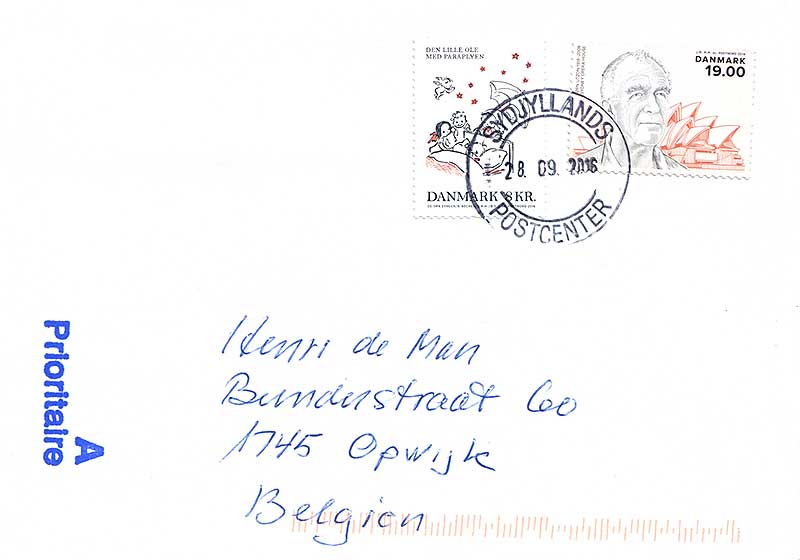 DEN LILLE OLE
MED PARAPLYEN
DANMARK 8 KR.
SYDNEY OPERA HOUSE
DANMARK
19.00
SYDJYLLANDS
28. 09. 2016
POSTCENTER
A
Prioritaire
Henri de Man
Bunderstraat 60
1745 Opwijk
Belgien